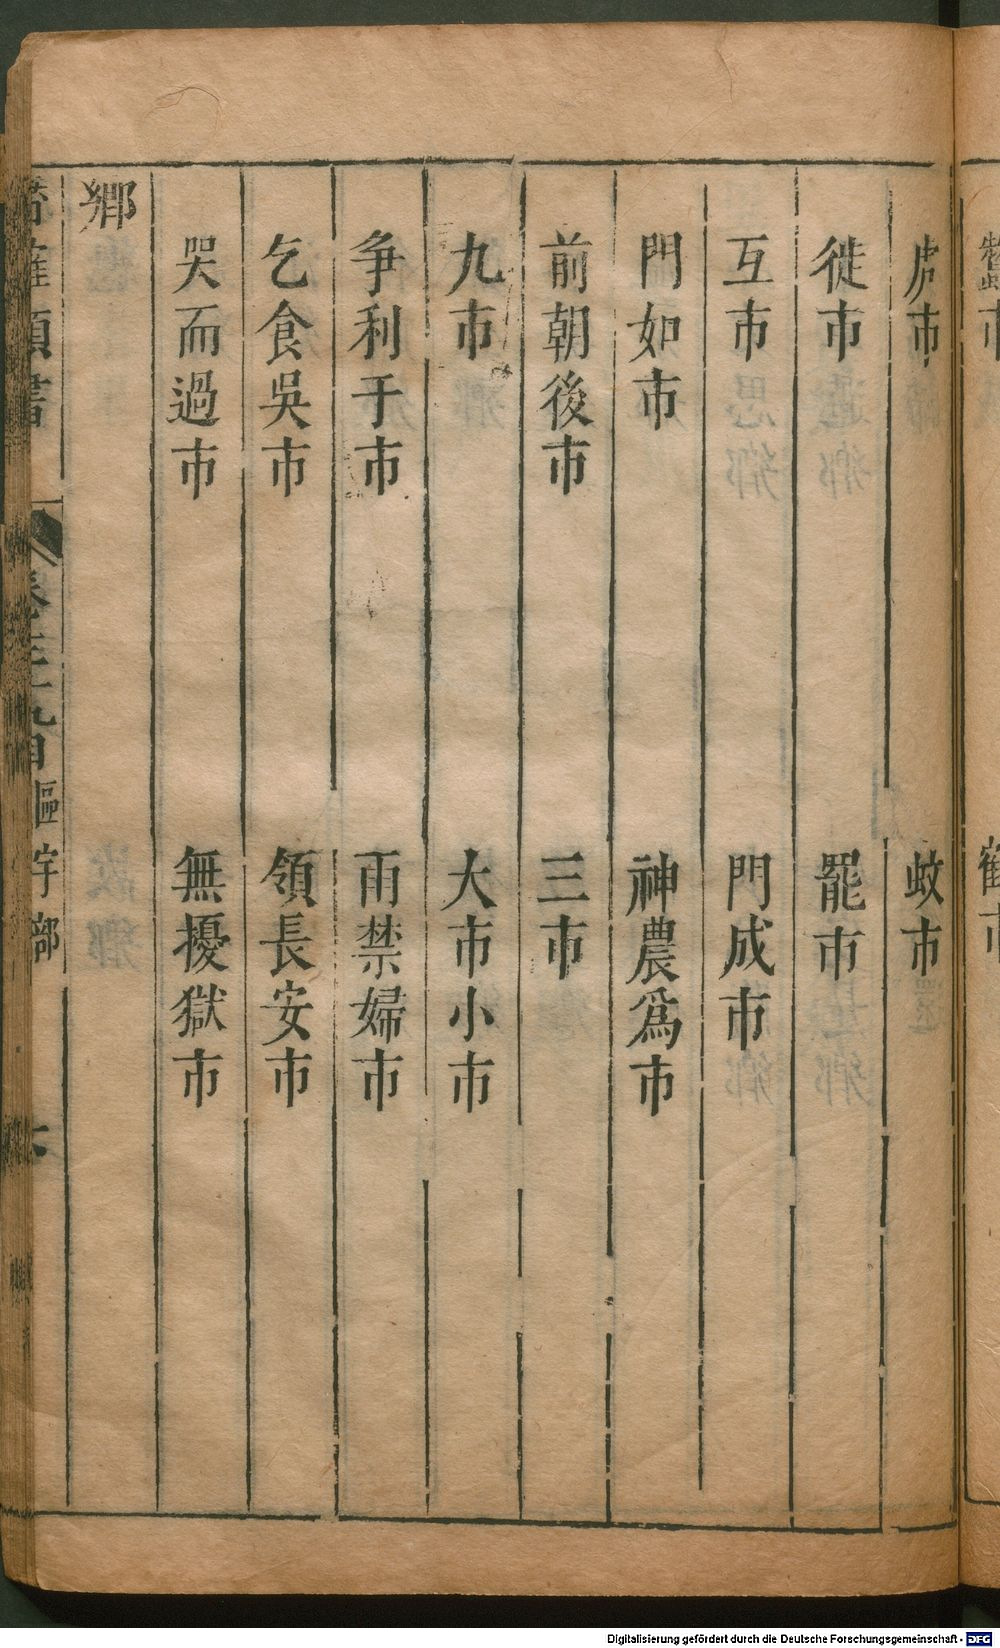 市
市
虎市　蚊市
徙市　罷市
互市　門成市
門如市　神農為市
前朝後市　三市
九市　大市小市
爭利于市　雨禁婦市
乞食吳市　領長安市
哭而過市　無擾獄市
鄉
類書　目　區宇部
Digitalisierung gefördert durch die Deutsche Forschungsgemeinschaft - DFG